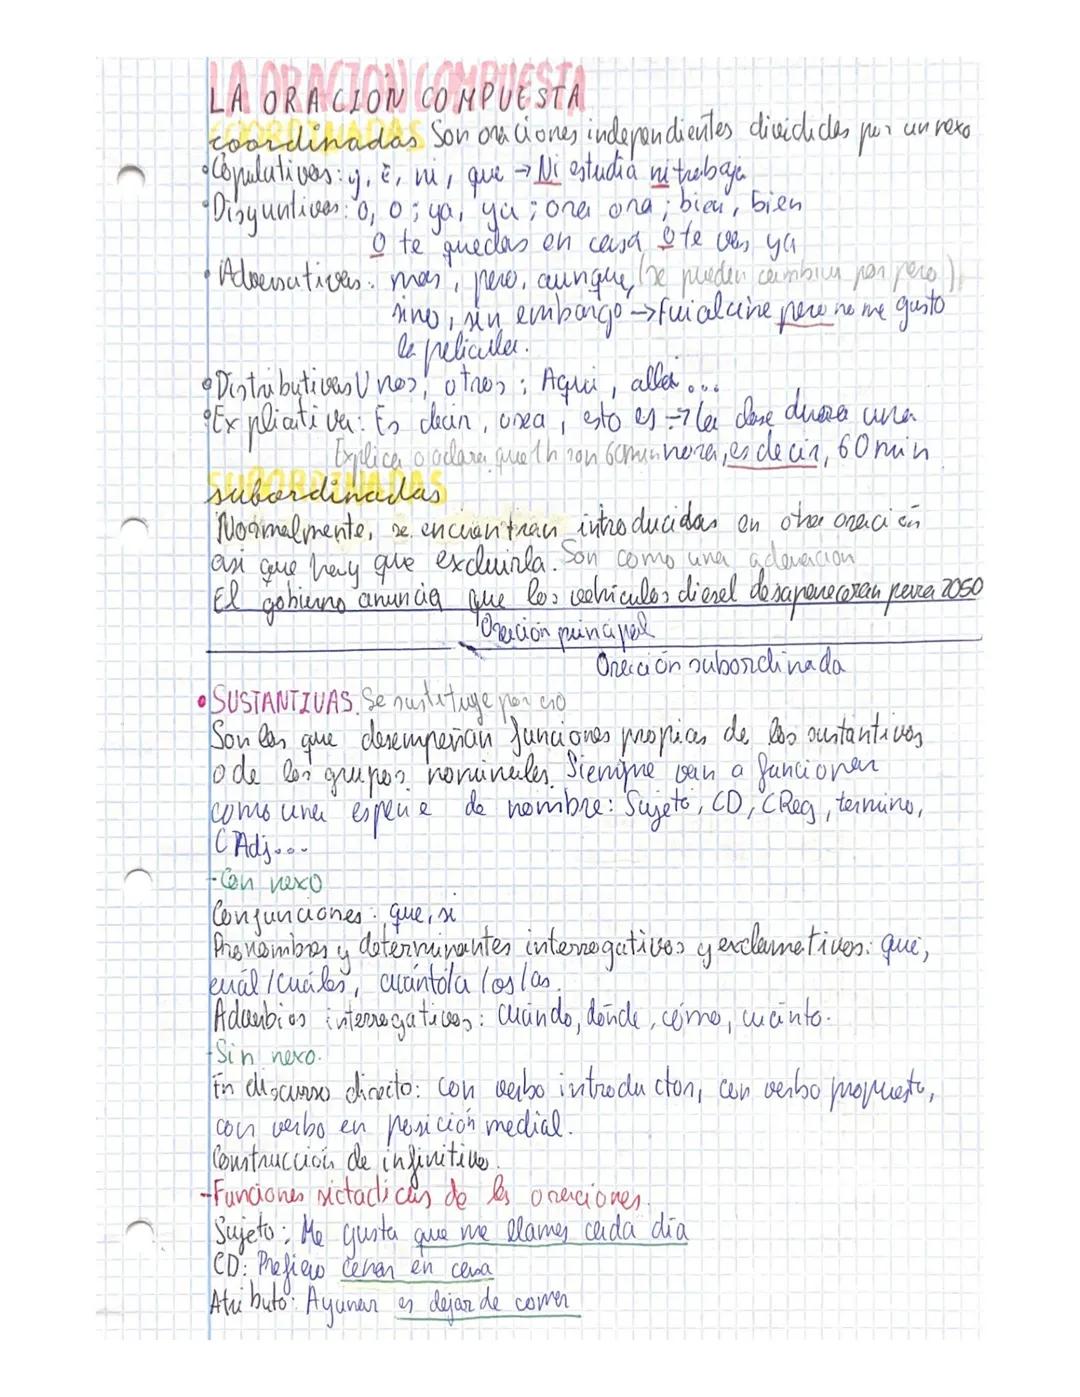 LA ORACIÓN COMPUESTA
coordinadas Son oraciones independientes divididas por un nexo
• Copulativas: y, e, ni, que → Ni estudia ni trabaja
• Disyuntivas: o, o; ya, ya; ora ora; bien, bien
O te quedas en casa o te vas ya
• Adversativas: mas, pero, aunque, (se pueden cambiar por pero)
sino, sin embargo → Fui al cine pero no me gusto
la pelicula.
• Distributivas Unos, otros; Aqui, alla...
• Explicativa: Es decir, osea, esto es → La clase durara una
Explica o aclara que 1h son 60min hora, es decir, 60 min
subordinadas
Normalmente, se encuentran introducidas en otra oración
asi que hay que excluirla. Son como una aclaracion
El gobierno anuncia que los vehiculos diesel desapareceran para 2050
Oración principal
Oración subordinada
• SUSTANTIVAS. Se sustituye por eso
Son las que desempeñan funciones propias de los sustantivos
o de los grupos nominales. Siempre van a funcionar
como una especie de nombre: Sujeto, CD, CReg, termino,
CAdj...
-Con nexo
Conjunciones: que, si
Pronombres y determinantes interrogativos y exclamativos: qué,
cuál/cuáles, cuánto/a/os/as.
Adverbios interrogativos: cuándo, dónde, cómo, cuánto.
-Sin nexo.
En discurso directo: con verbo introductor, con verbo propuesto,
con verbo en posición medial.
Construcción de infinitivo.
-Funciones sictacticas de las oraciones.
Sujeto: Me gusta que me llames cada día
CD: Prefiero cenar en casa
Atributo: Ayunar es dejar de comer